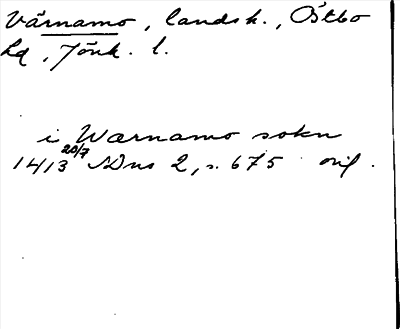 Värnamo, landsk., Östbo
hd, Jönk. l.
i Wærnamo sokn
1413 20/7 SDns 2, s. 675 orig.